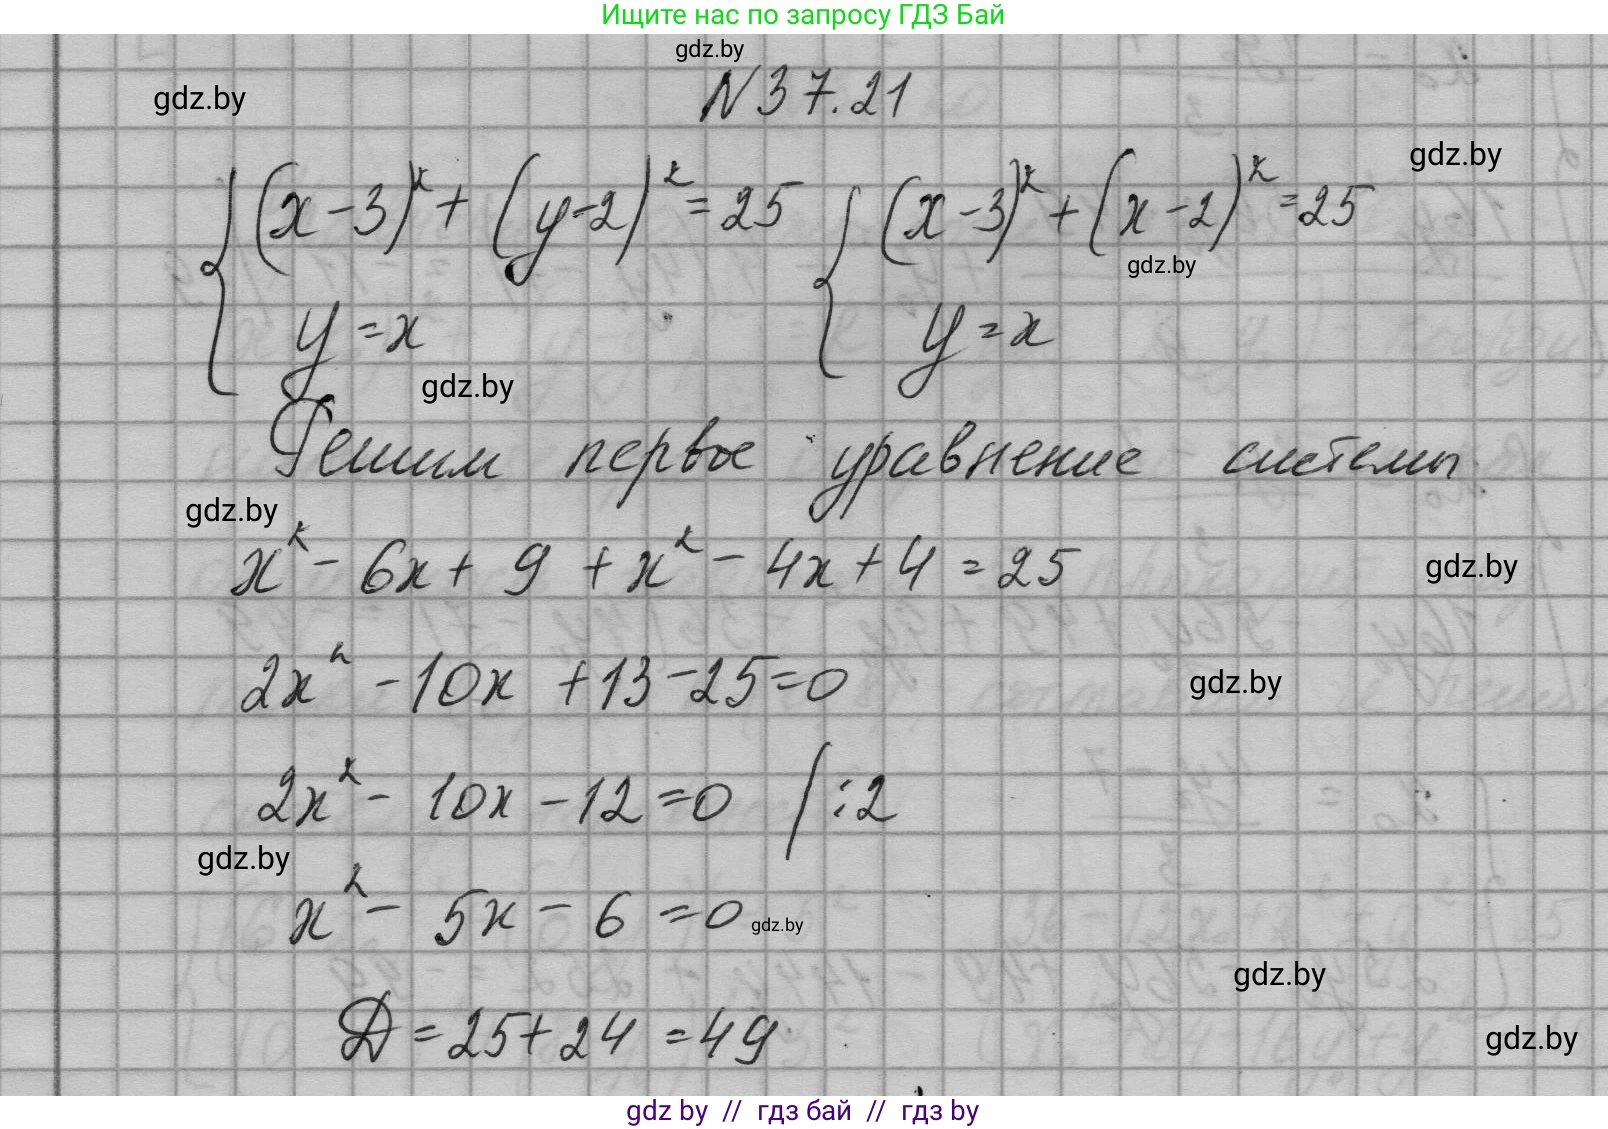 Ищите нас по запросу ГДЗ Бай
gdz.by
gdz.by
N 37.21
gdz.by
{ (x-3)² + (y-2)² = 25 { (x-3)² + (x-2)² = 25
gdz.by
y = x y = x
gdz.by
Решим первое уравнение системы
gdz.by
x² - 6x + 9 + x² - 4x + 4 = 25
gdz.by
2x² - 10x + 13 - 25 = 0
gdz.by
2x² - 10x - 12 = 0 / : 2
gdz.by
x² - 5x - 6 = 0
gdz.by
gdz.by
D = 25 + 24 = 49
gdz.by
gdz by // гдз бай // гдз by